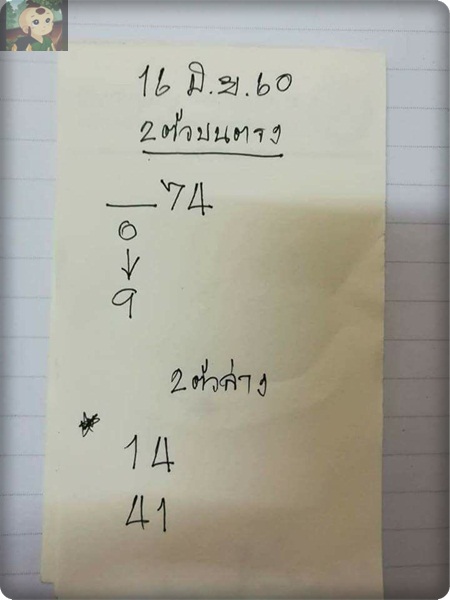 16 มิ.ย.60
2ตัวบนตรง
__74
0
↓
9
2ตัวล่าง
14
41